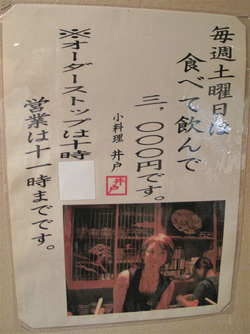 毎週土曜日は
食べて飲んで
三、〇〇〇円です。
小料理 井戸
井戸
※オーダーストップは十時
営業は十一時までです。